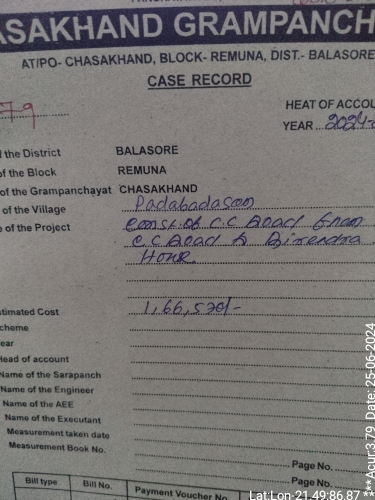 ASAKHAND GRAMPANCH
ATIPO- CHASAKHAND, BLOCK- REMUNA, DIST.- BALASORE
CASE RECORD
79
HEAT OF ACCOU
YEAR 2024-
f the District BALASORE
of the Block REMUNA
of the Grampanchayat CHASAKHAND
of the Village Padabadasan
e of the Project Const. of C.C Road from
C.C Road to Birendra
House
stimated Cost 1,66,520/-
cheme
ear
Head of account
Name of the Sarapanch
Name of the Engineer
Name of the AEE
Name of the Executant
Measurement taken date
Measurement Book No.
Page No.
Page No.
Bill type Bill No. Payment Voucher No.
Lat:Lon 21.49:86.87
***Acur:3.79 Date: 25-06-2024